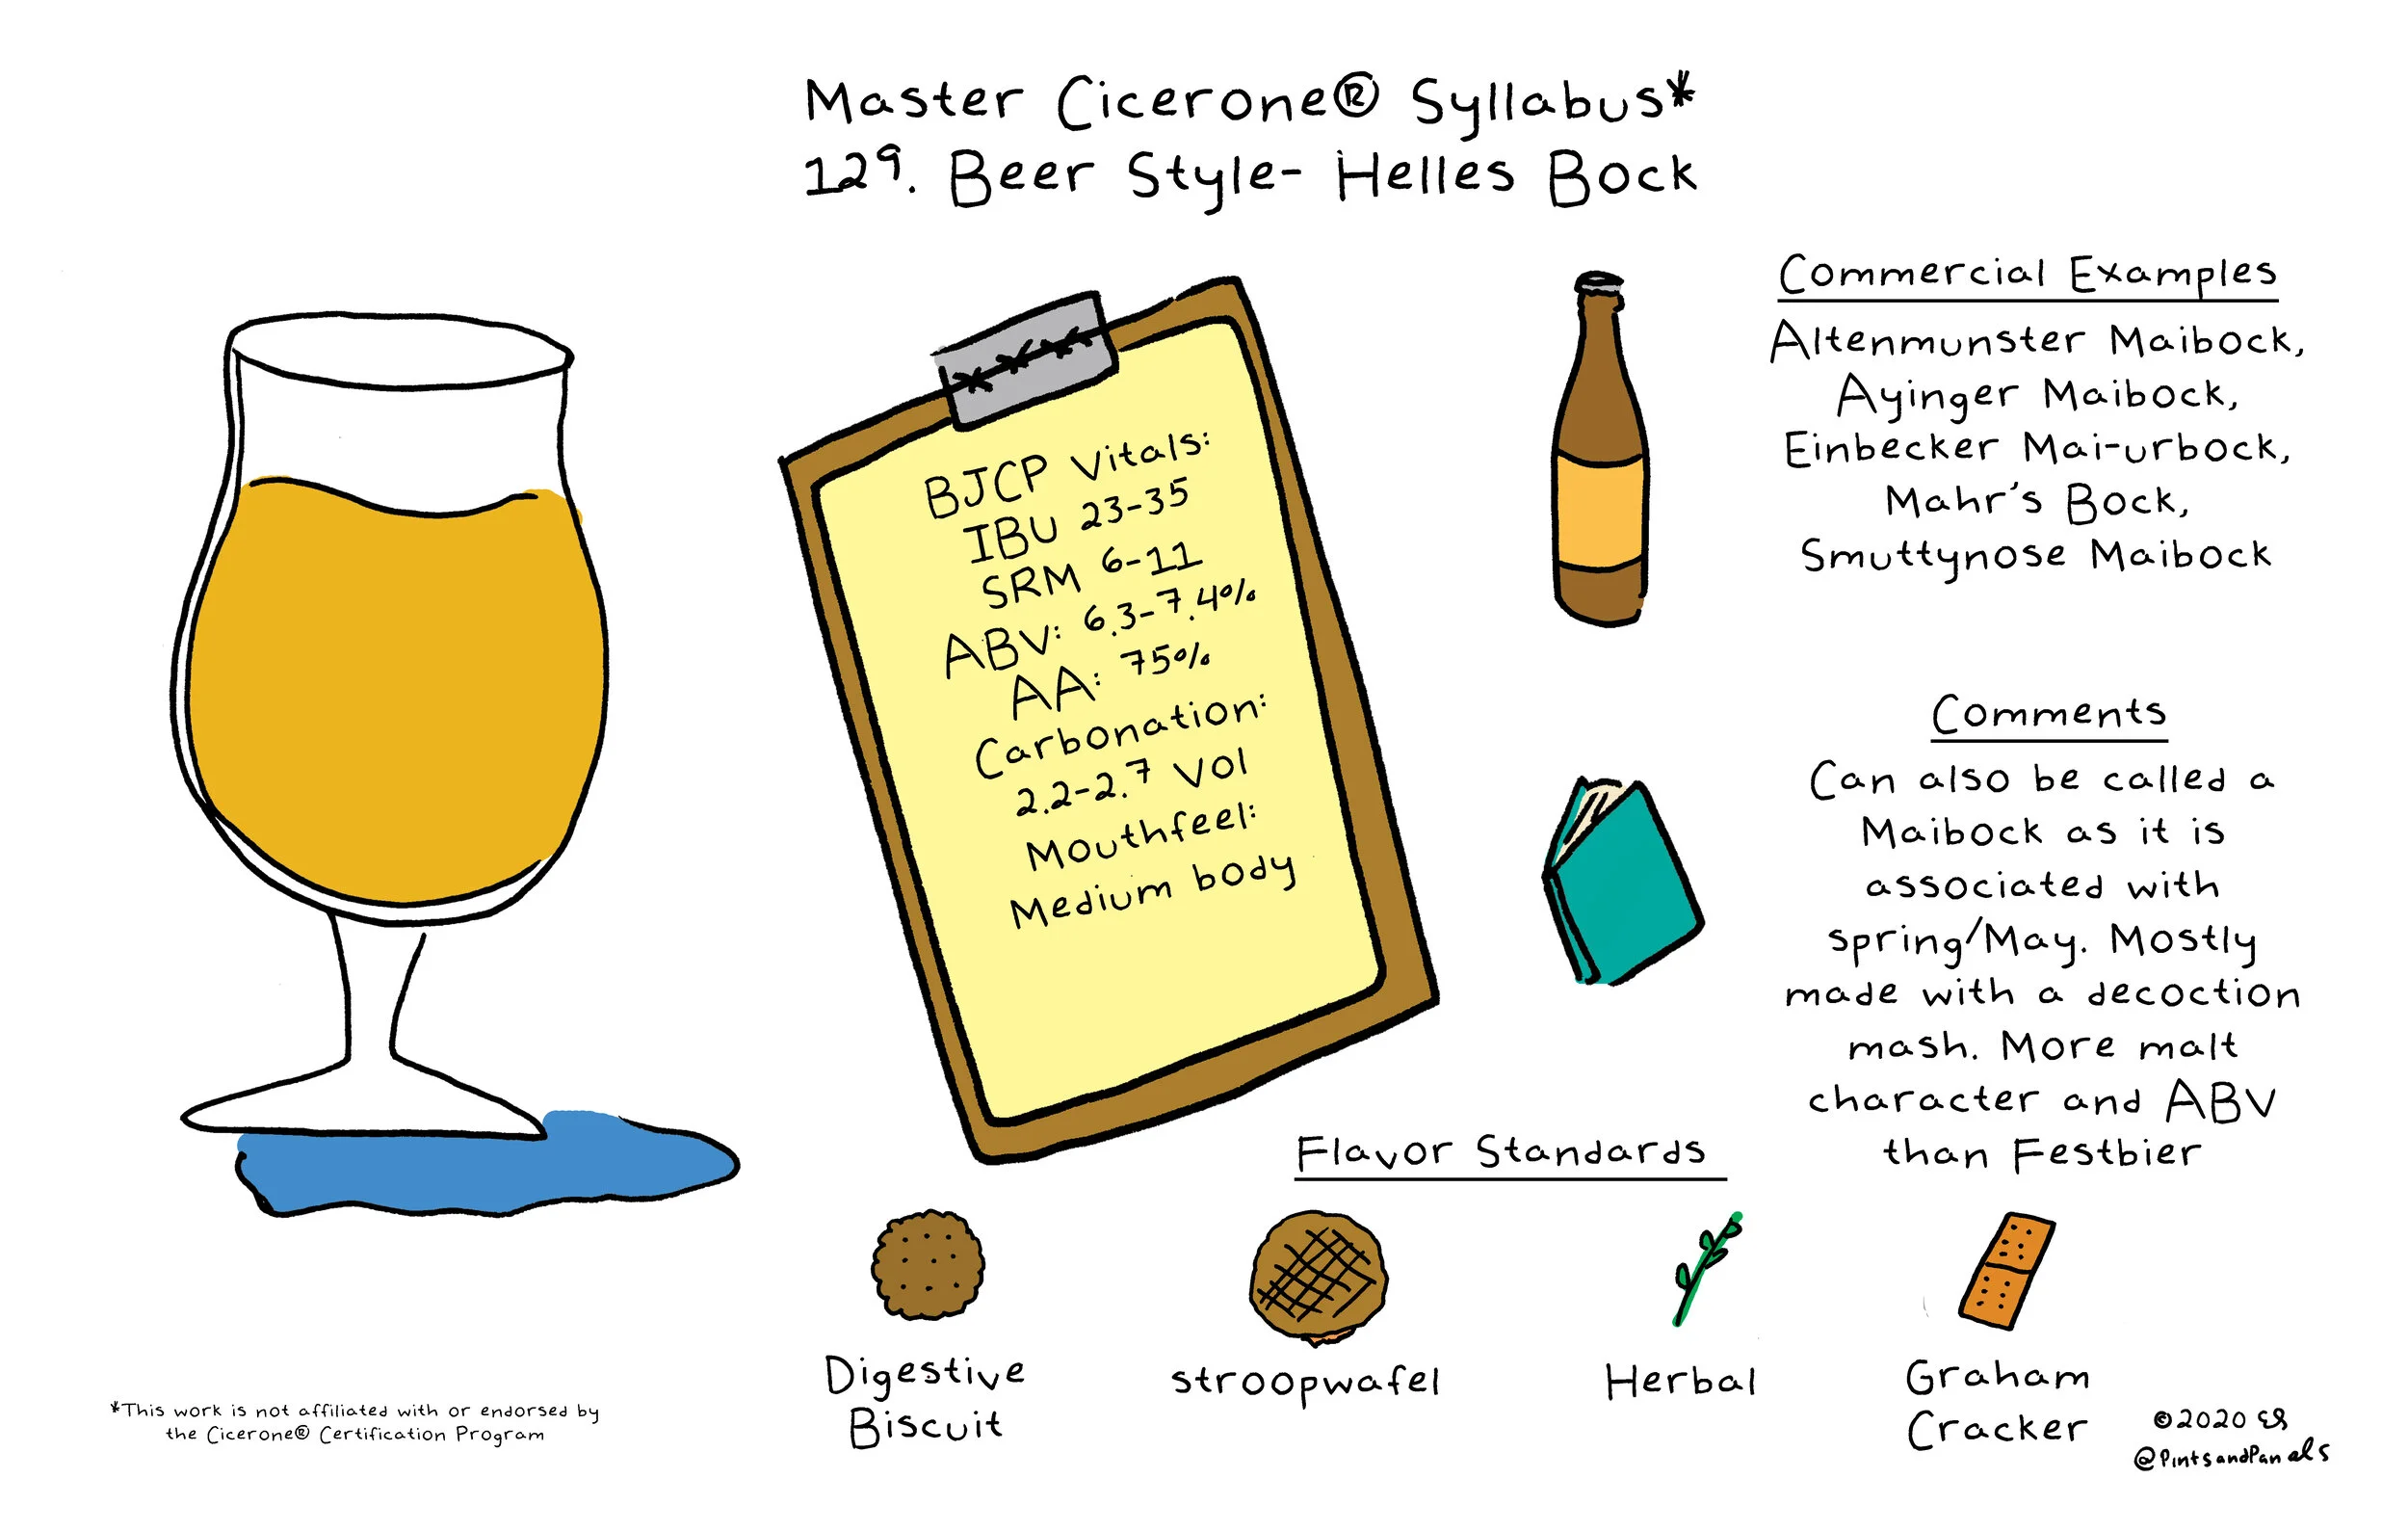 Master Cicerone® Syllabus*
129. Beer Style- Helles Bock
BJCP Vitals:
IBU 23-35
SRM 6-11
ABV: 6.3-7.4%
AA: 75%
Carbonation:
2.2-2.7 Vol
Mouthfeel:
Medium body
Commercial Examples
Altenmunster Maibock,
Ayinger Maibock,
Einbecker Mai-urbock,
Mahr's Bock,
Smuttynose Maibock
Comments
Can also be called a
Maibock as it is
associated with
spring/May. Mostly
made with a decoction
mash. More malt
character and ABV
than Festbier
Flavor Standards
Digestive
Biscuit
stroopwafel
Herbal
Graham
Cracker
*This work is not affiliated with or endorsed by
the Cicerone® Certification Program
©2020 ES
@PintsandPanels